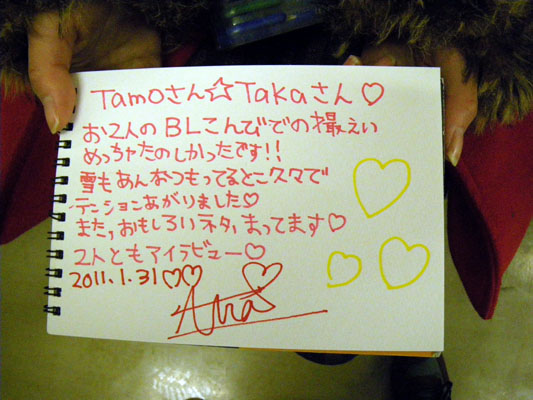 Tamoさん☆Takaさん♡
お2人のBLこんびでの撮えい
めっちゃたのしかったです!!
雪もあんなつもってるとこ久々で
テンションあがりました♡
また、おもしろいネタ、まってます♡
2人ともアイラビュー♡
2011.1.31♡♡